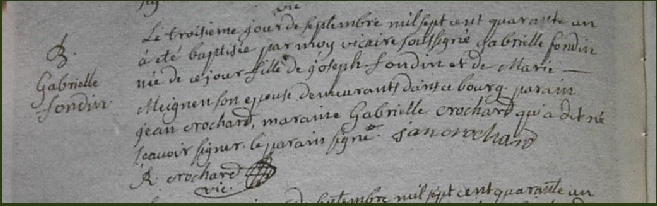 vic
B.
Gabrielle
fondin
Le troisieme jour de septembre mil sept cent quarante un
à été baptisée par moy vicaire soussigné Gabrielle fondin
née de ce jour fille de joseph fondin et de Marie
Meignen son epouse demeurants dans ce bourg. parain
jean crochard, maraine Gabrielle crochard qui a dit ne
scavoir signer. le parain signe. jan crochard
R. crochard
vic.
septembre mil sept cent quarante un